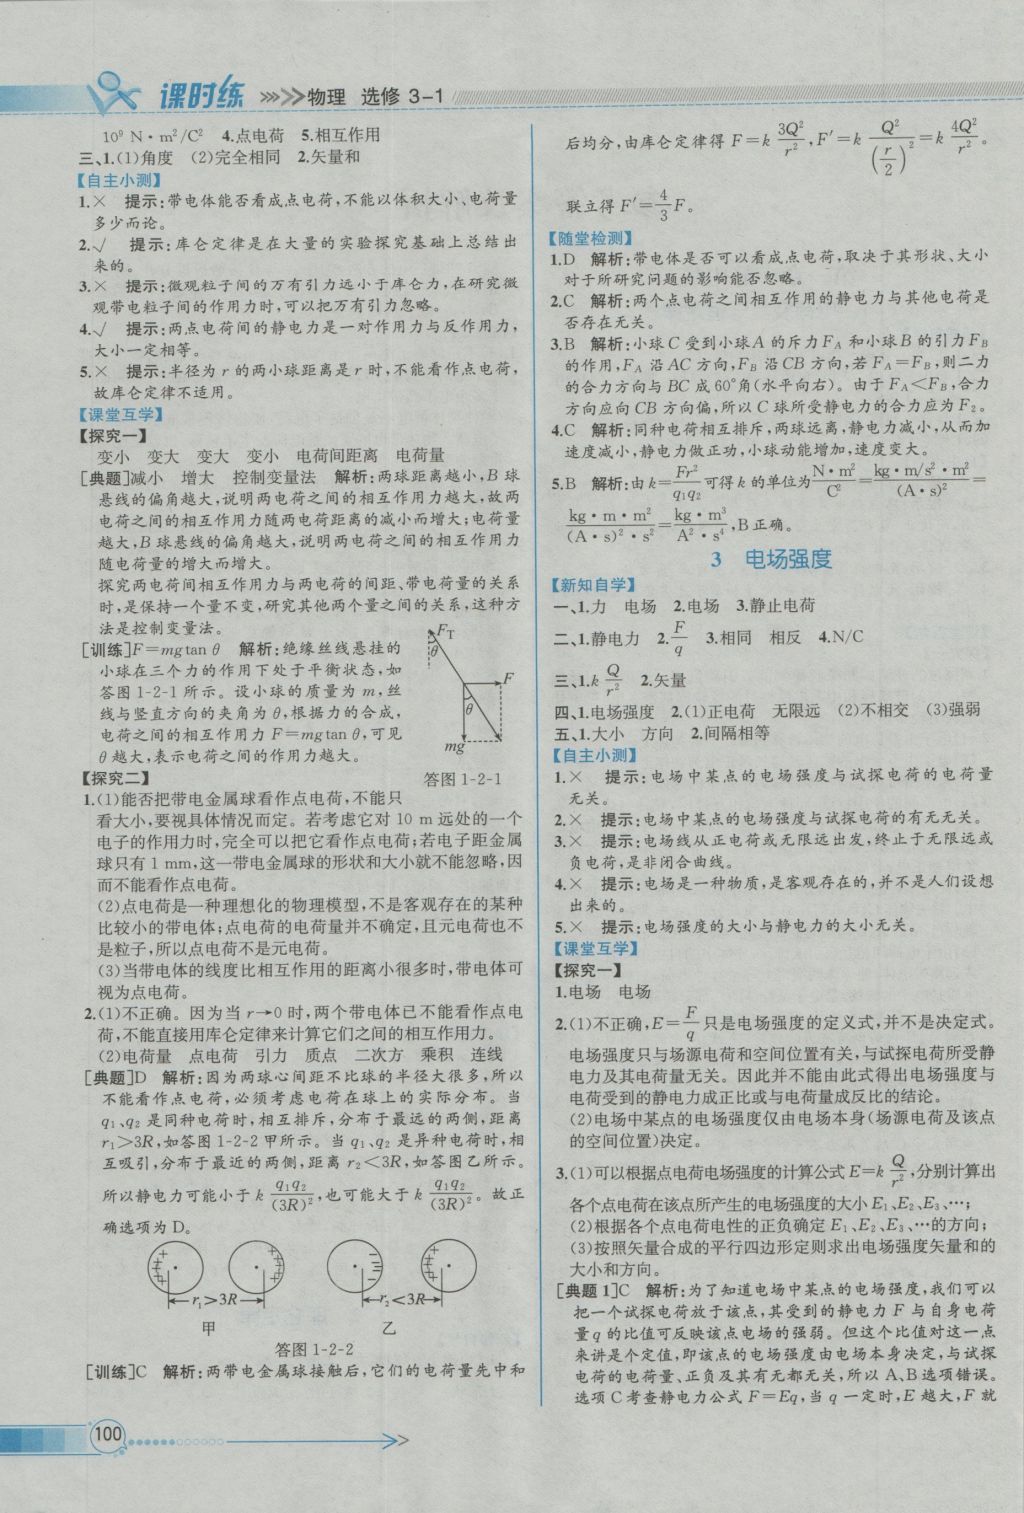 课时练 物理 选修 3-1
10⁹ N·m²/C² 4.点电荷 5.相互作用
三、1.(1)角度 (2)完全相同 2.矢量和
【自主小测】
1.× 提示:带电体能否看成点电荷,不能以体积大小、电荷量
多少而论。
2.√ 提示:库仑定律是在大量的实验探究基础上总结出
来的。
3.× 提示:微观粒子间的万有引力远小于库仑力,在研究微
观带电粒子间的作用力时,可以把万有引力忽略。
4.√ 提示:两点电荷间的静电力是一对作用力与反作用力,
大小一定相等。
5.× 提示:半径为 r 的两小球距离是 r 时,不能看作点电荷,
故库仑定律不适用。
【课堂互学】
【探究一】
变小 变大 变大 变小 电荷间距离 电荷量
[典题]减小 增大 控制变量法 解析:两球距离越小,B 球
悬线的偏角越大,说明两电荷之间的相互作用力越大,故两
电荷之间的相互作用力随两电荷距离的减小而增大;电荷量
越大,B 球悬线的偏角越大,说明两电荷之间的相互作用力
随电荷量的增大而增大。
探究两电荷间相互作用力与两电荷的间距、带电荷量的关系
时,是保持一个量不变,研究其他两个量之间的关系,这种方
法是控制变量法。
[训练]F=mgtan θ 解析:绝缘丝线悬挂的
小球在三个力的作用下处于平衡状态,如
答图 1-2-1 所示。设小球的质量为 m,丝
线与竖直方向的夹角为 θ,根据力的合成,
电荷之间的相互作用力 F=mgtan θ,可见
θ 越大,表示电荷之间的作用力越大。
F_T
θ
F
θ
mg
答图 1-2-1
【探究二】
1.(1)能否把带电金属球看作点电荷,不能只
看大小,要视具体情况而定。若考虑它对 10 m 远处的一个
电子的作用力时,完全可以把它看作点电荷;若电子距金属
球只有 1 mm,这一带电金属球的形状和大小就不能忽略,因
而不能看作点电荷。
(2)点电荷是一种理想化的物理模型,不是客观存在的某种
比较小的带电体;点电荷的电荷量并不确定,且元电荷也不
是粒子,所以点电荷不是元电荷。
(3)当带电体的线度比相互作用的距离小很多时,带电体可
视为点电荷。
2.(1)不正确。因为当 r→0 时,两个带电体已不能看作点电
荷,不能直接用库仑定律来计算它们之间的相互作用力。
(2)电荷量 点电荷 引力 质点 二次方 乘积 连线
[典题]D 解析:因为两球心间距不比球的半径大很多,所以
不能看作点电荷,必须考虑电荷在球上的实际分布。当
q₁、q₂ 是同种电荷时,相互排斥,分布于最远的两侧,距离
r₁>3R,如答图 1-2-2 甲所示。当 q₁、q₂ 是异种电荷时,相
互吸引,分布于最近的两侧,距离 r₂<3R,如答图乙所示。
所以静电力可能小于 k q₁q₂/(3R)²,也可能大于 k q₁q₂/(3R)²。故正
确选项为 D。
r₁>3R
r₂<3R
甲 乙
答图 1-2-2
[训练]C 解析:两带电金属球接触后,它们的电荷量先中和
后均分,由库仑定律得 F=k 3Q²/r²,F′=k Q²/(r/2)²=k 4Q²/r²。
联立得 F′=4/3 F。
【随堂检测】
1.D 解析:带电体是否可以看成点电荷,取决于其形状、大小
对于所研究问题的影响能否忽略。
2.C 解析:两个点电荷之间相互作用的静电力与其他电荷是
否存在无关。
3.B 解析:小球 C 受到小球 A 的斥力 F_A 和小球 B 的引力 F_B
的作用,F_A 沿 AC 方向,F_B 沿 CB 方向,若 F_A=F_B,则二力
的合力方向与 BC 成 60°角(水平向右)。由于 F_A<F_B,合力
方向应向 CB 方向偏,所以 C 球所受静电力的合力应为 F₂。
4.C 解析:同种电荷相互排斥,两球远离,静电力减小,从而加
速度减小,静电力做正功,小球动能增加,速度变大。
5.B 解析:由 k=Fr²/q₁q₂ 可得 k 的单位为 N·m²/C²=kg·m/s²·m²/(A·s)²=
kg·m·m²/(A·s)²·s²=kg·m³/A²·s⁴,B 正确。
3 电场强度
【新知自学】
一、1.力 电场 2.电场 3.静止电荷
二、1.静电力 2.F/q 3.相同 相反 4.N/C
三、1.k Q/r² 2.矢量
四、1.电场强度 2.(1)正电荷 无限远 (2)不相交 (3)强弱
五、1.大小 方向 2.间隔相等
【自主小测】
1.× 提示:电场中某点的电场强度与试探电荷的电荷量
无关。
2.× 提示:电场中某点的电场强度与试探电荷的有无无关。
3.× 提示:电场线从正电荷或无限远出发,终止于无限远或
负电荷,是非闭合曲线。
4.× 提示:电场是一种物质,是客观存在的,并不是人们设想
出来的。
5.× 提示:电场强度的大小与静电力的大小无关。
【课堂互学】
【探究一】
1.电场 电场
2.(1)不正确,E=F/q 只是电场强度的定义式,并不是决定式。
电场强度只与场源电荷和空间位置有关,与试探电荷所受静
电力及其电荷量无关。因此并不能由此式得出电场强度与
电荷受到的静电力成正比或与电荷量成反比的结论。
(2)电场中某点的电场强度仅由电场本身(场源电荷及该点
的空间位置)决定。
3.(1)可以根据点电荷电场强度的计算公式 E=k Q/r²,分别计算出
各个点电荷在该点所产生的电场强度的大小 E₁、E₂、E₃、…;
(2)根据各个点电荷电性的正负确定 E₁、E₂、E₃、…的方向;
(3)按照矢量合成的平行四边形定则求出电场强度矢量和的
大小和方向。
[典题 1]C 解析:为了知道电场中某点的电场强度,我们可以
把一个试探电荷放于该点,其受到的静电力 F 与自身电荷
量 q 的比值可反映该点电场的强弱。但这个比值对这一点
来讲是个定值,即该点的电场强度由电场本身决定,与试探
电荷的电荷量、正负及其有无都无关,所以 A、B 选项错误。
选项 C 考查静电力公式 F=Eq,当 q 一定时,E 越大,F 就
100